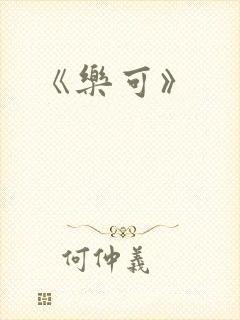 《樂可》
何仲義